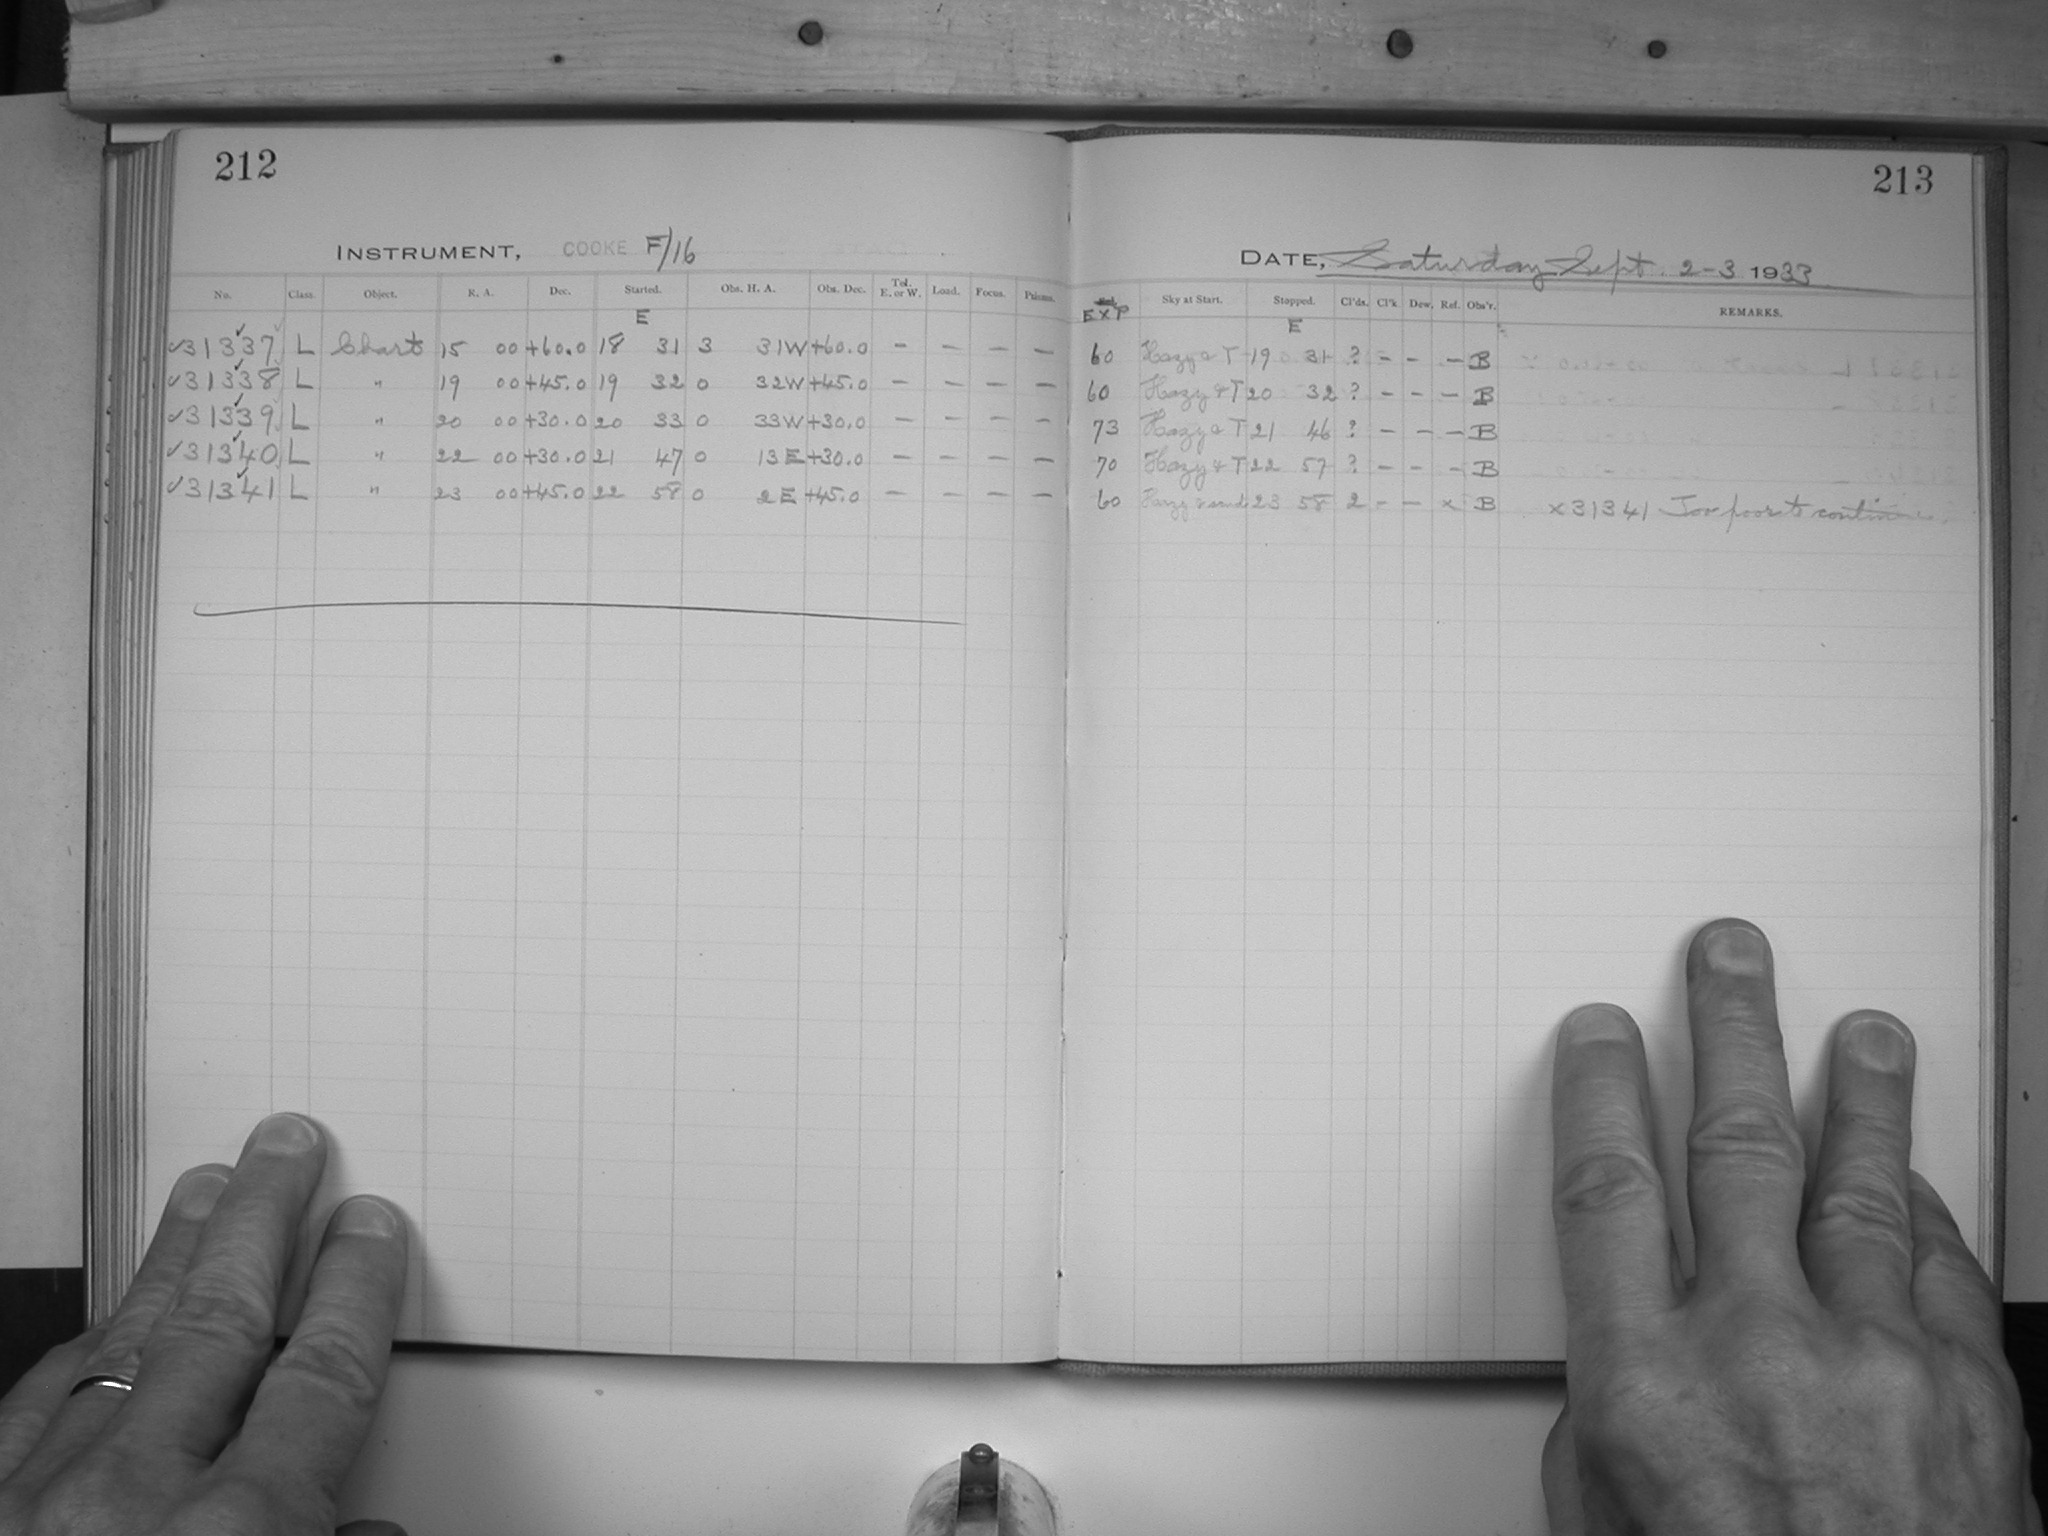 212
INSTRUMENT, COOKE F/16
No. Class. Object. R. A. Dec. Started. Obs. H. A. Obs. Dec. Tel. E. or W. Load. Focus. Prisms.
E
✓31337✓ L Chart 15 00 +60.0 18 31 3 31W +60.0 - - - -
✓31338✓ L " 19 00 +45.0 19 32 0 32W +45.0 - - - -
✓31339✓ L " 20 00 +30.0 20 33 0 33W +30.0 - - - -
✓31340✓ L " 22 00 +30.0 21 47 0 13E +30.0 - - - -
✓31341✓ L " 23 00 +45.0 22 58 0 2E +45.0 - - - -
213
DATE, Saturday Sept. 2-3 1933
EXP Sky at Start. Stopped. Cl'ds. Cl'k Dew. Ref. Obs'r. REMARKS.
E
60 Hazy & T 19 31 ? - - - B
60 Hazy & T 20 32 ? - - - B
73 Hazy & T 21 46 ? - - - B
70 Hazy & T 22 57 ? - - - B
60 Hazy & 23 58 2 - - x B x31341 Too poor to continue.